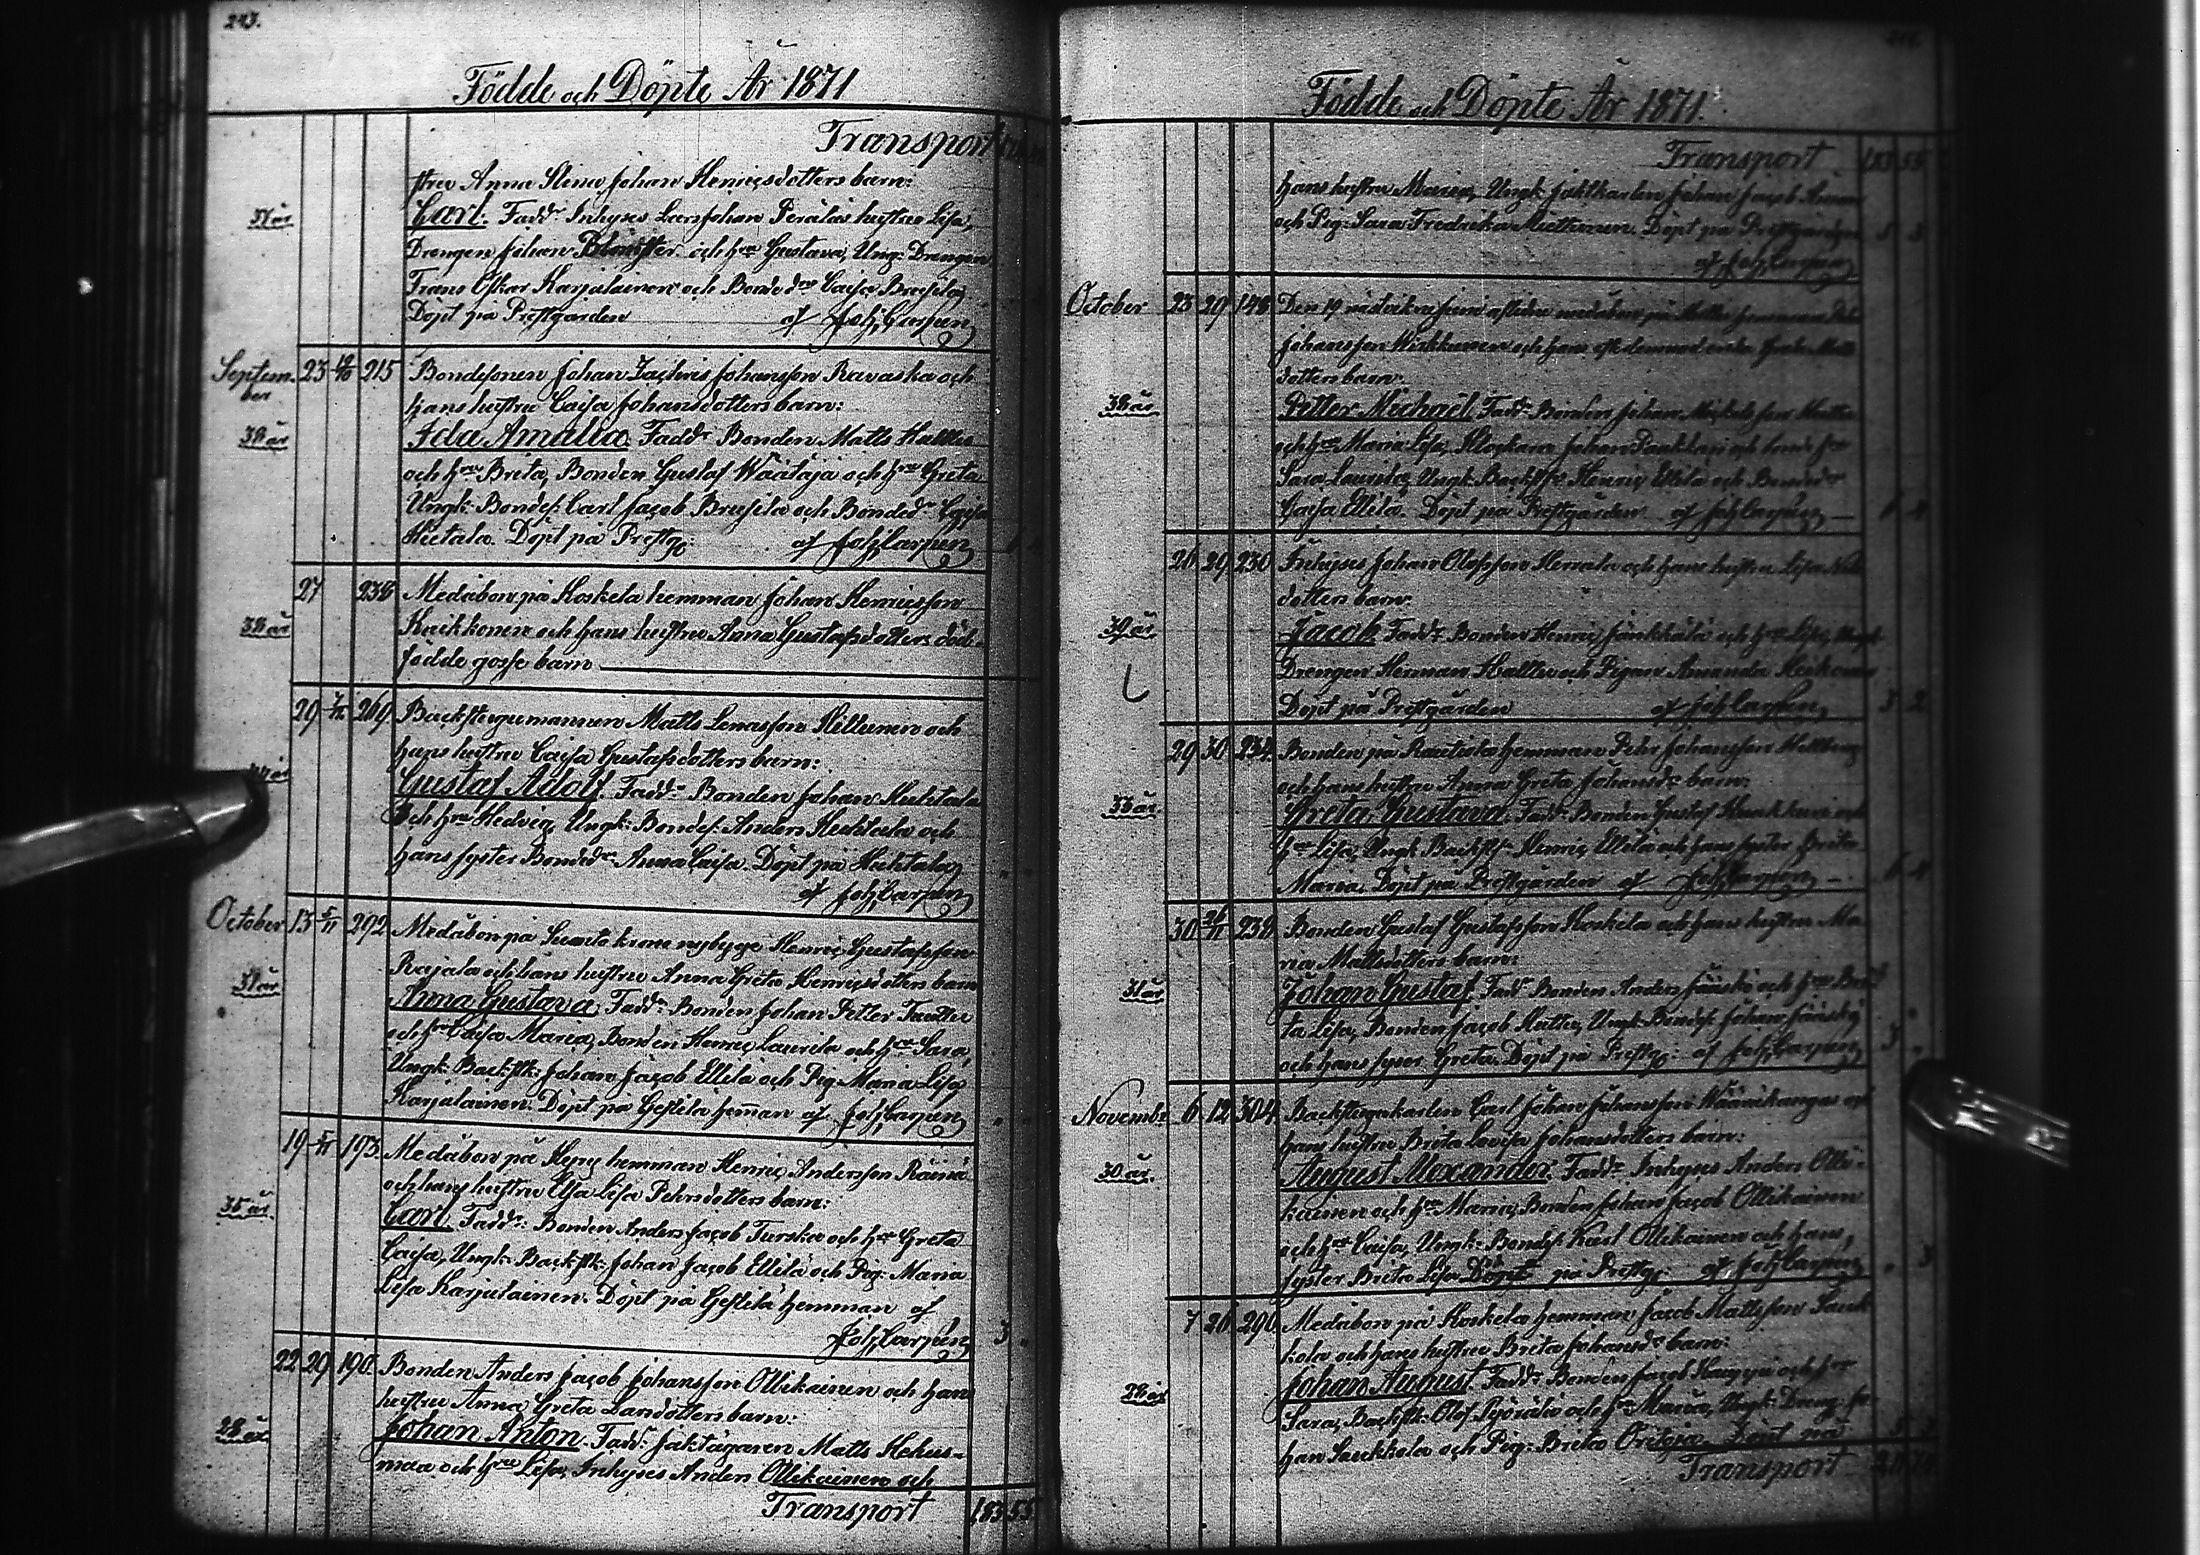 243.
Födde och Döpte År 1871
Transport
stru Anna Stina Johan Henricsdotters barn:
37 år
Carl. Fadd: Inhyses Lars Johan Perälas hustru Lisa,
Drengen Johan och hru Gustava, Ung: Drengen
Frans Oskar Karjalainen och Bonde dr Caisa Brusila
Döpt på Prestgården af Joh. Carpen
Septem-
ber
23 215 Bondesonen Johan Zachris Johansson Ravaska och
hans hustru Caisa Johansdotters barn:
38 år
Ida Amalia Fadd: Bonden Matts
och hru Brita, Bonden Gustaf Wäätäjä och hru Greta
Ungk: Bondes. Carl Jacob Brusila och Bonded: Cajsa
Hietala. Döpt på Prestg: af Joh. Carpen
27 238 Medåbon på Koskela hemman Johan Henricsson
38 år
Kaikkonen och hans hustru Anna Gustafsdotters död-
födde gosse barn
29 269 Backstugumannen Matts Lenasson Kittunen och
hans hustru Caisa Gustafsdotters barn:
Gustaf Adolf. Fadd: Bonden Johan Huhtala
och hru Hedvig, Ungk: Bondes: Anders Huhtala och
hans syster Bonded: Anna Caisa. Döpt på Huhtala
af Joh. Carpen
October 13 5/11 292 Medåbon på krono nybygge Henric Gustafsson
Rajala och hans hustru Anna Greta Henricsdotters barn
37 år
Anna Gustava. Fadd: Bonden Johan Petter
och hru Caisa Maria, Bonden Henric Laurila och hru Sara,
Ungk: Backstk: Johan Jacob Ellilä och Pig: Maria Lisa
Karjalainen. Döpt på Gestilä heman af Joh. Carpen
19 5/11 193 Medåbon på Hyry hemman Henric Andersson Räinä
och hans hustru Elsa Lisa Pehrsdotters barn:
35 år
Carl. Fadd: Bonden Anders Jacob Turska och hru Greta
Caisa, Ungk: Backstk: Johan Jacob Ellilä och Pig: Maria
Lisa Karjalainen. Döpt på Gestilä hemman af
Joh. Carpen 3
22 29 190 Bonden Anders Jacob Johansson Ollikainen och hans
hustru Anna Greta Larsdotters barn:
28 år
Johan Anton. Fadd: Jaktägaren Matts
och hru Lisa, Inhyses Anders Ollikainen och
Transport 183 55
Födde och Döpte År 1871.
Transport 183 55
hans hustru Maria, Ungk: Johan Jacob
och Pig: Sara Fredrika Miettinen. Döpt på Prestgården 5 3
af Joh. Carpen
October 23 29 148 Den 19 sistvikne Juni aflidne medåbon på hemman
Johansson Wirkkunen och hans efterlemnade enka
dotters barn.
38 år
Petter Michael. Fadd: Bonden Johan Michelsson
och hru Maria Lisa, Johan och hru
Sara Laurila, Ungk: Backstk: Henric Ellilä och Bonded:
Caisa Ellilä. Döpt på Prestgården af Joh. Carpen
26 29 230 Inhyses Johan Olofsson och hans hustru Lisa
dotters barn.
39 år
Jacob. Fadd: Bonden Henric Jänkkälä och hru Lisa, Ungk:
Drengen Herman och Pigan Amanda
Döpt på Prestgården af Joh. Carpen 3 2
29 30 234 Bonden på Rautiola hemman Pehr Johansson Hellberg
och hans hustru Anna Greta Johansdr barn:
33 år
Greta Gustava. Fadd: Bonden Gustaf och
hru Lisa, Ungk: Backstk: Henric Ellilä och hans syster Brita
Maria. Döpt på Prestgården af Joh. Carpen
30 26/11 238 Bonden Gustaf Gustafsson Koskela och hans hustru Ma-
ria Mattsdotters barn:
31 år
Johan Gustaf. Fadd: Bonden Anders Jääskö och hru Bri-
ta Lisa, Bonden Jacob Ungk: Bondes: Johan Jääskö
och hans syster Greta. Döpt på Prestg: af Joh. Carpen 3
Novembr 6 12 304 Backstugukarlen Carl Johan Johansson Wäänikangas och
hans hustru Brita Lovisa Johansdotters barn:
30 år
August Alexander. Fadd: Inhyses Anders Olli-
kainen och hru Maria, Bonden Johan Jacob Ollikainen
och hru Caisa, Ungk: Bondes: Karl Ollikainen och hans
syster Brita Lisa. Döpt på Prestg: af Joh. Carpen 3
7 26 290 Medåbon på Koskela hemman Jacob Mattsson Sauk-
kola och hans hustru Brita Johansdr barn:
28 år
Johan August. Fadd: Bonden Jacob och hru
Sara, Backstk: Olof Pyörälä och hru Maria, Ungk: Dreng: Jo-
han Saukkola och Pig: Brita Döpt på
Transport